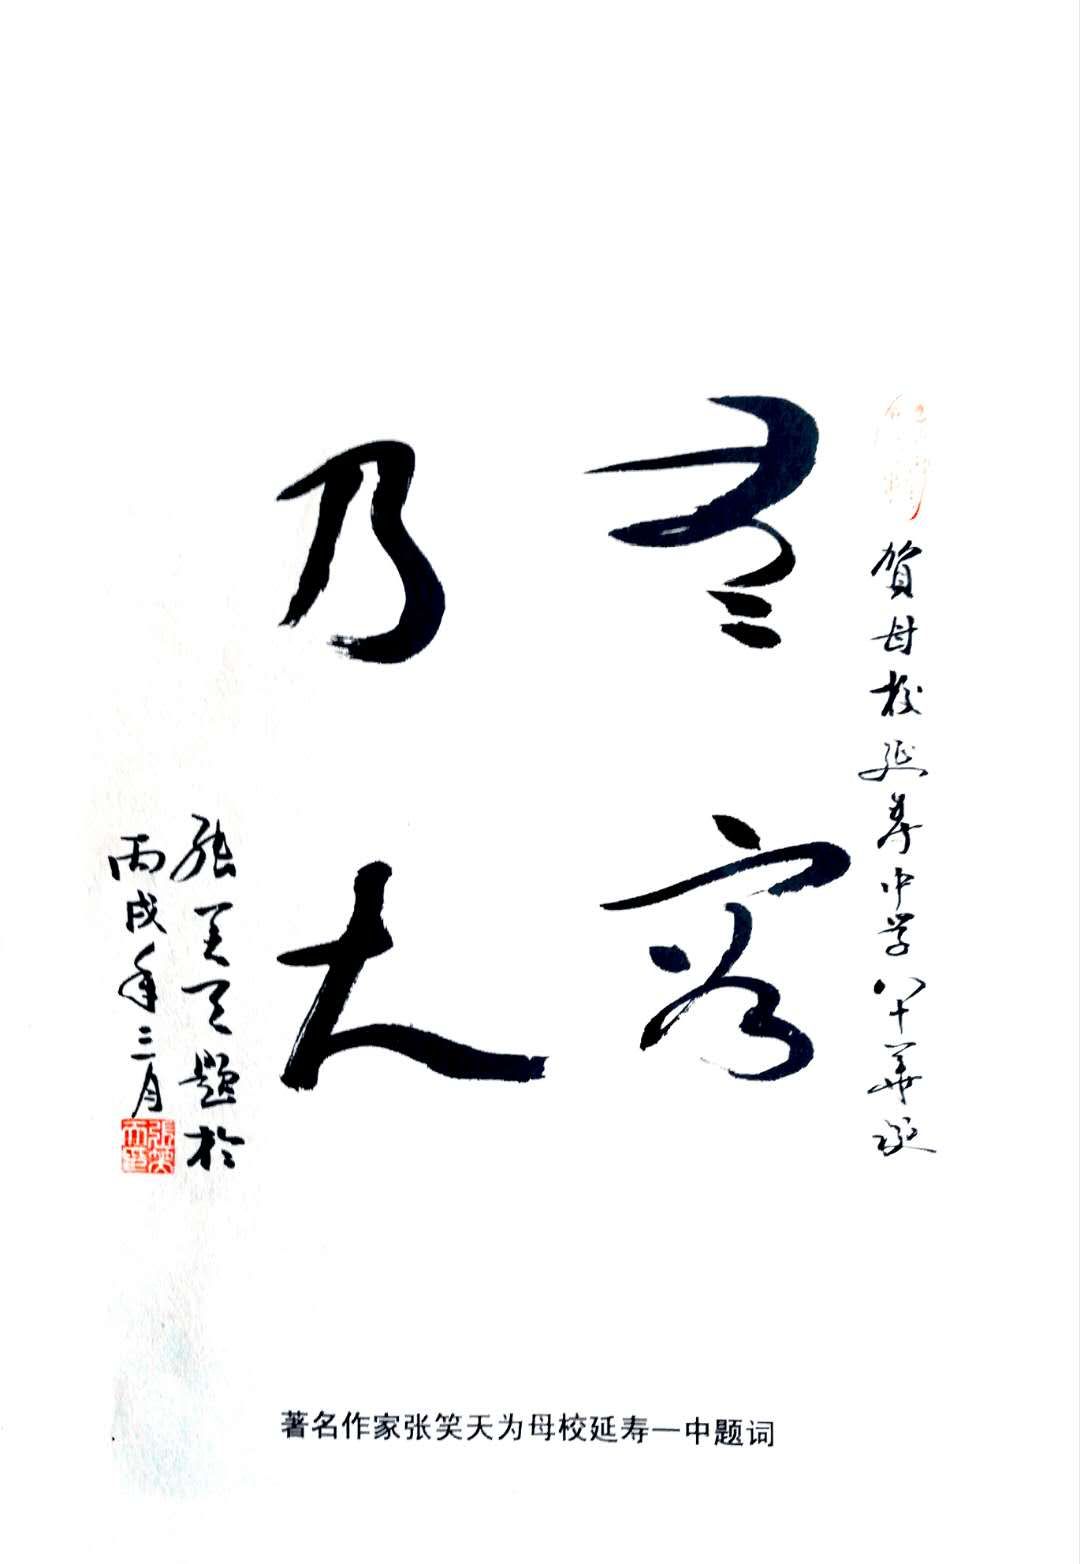 贺母校延寿中学八十華诞
有容
乃大
张笑天题於
丙戌年三月
張笑天印
著名作家张笑天为母校延寿一中题词